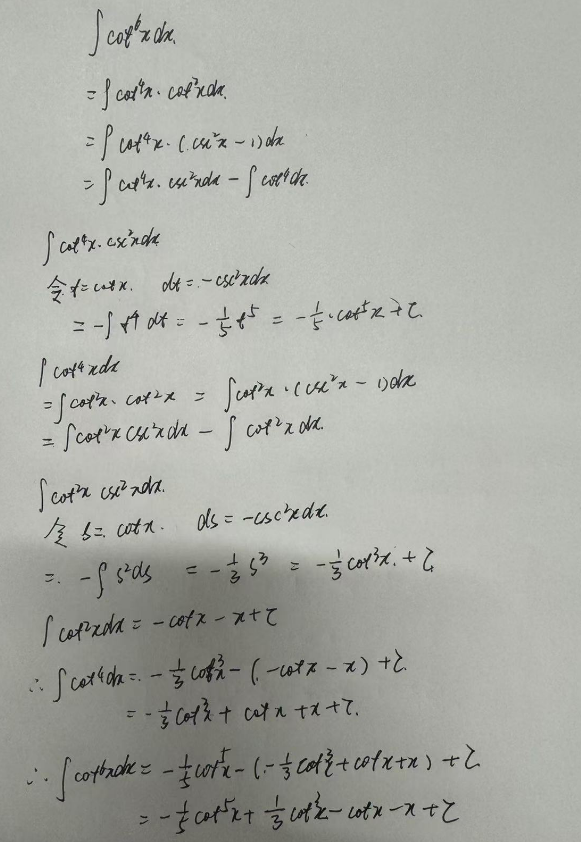 ∫cot⁶x dx.
= ∫cot⁴x · cot²x dx.
= ∫cot⁴x · (csc²x − 1) dx
= ∫cot⁴x · csc²x dx − ∫cot⁴ dx.
∫cot⁴x · csc²x dx
令 t = cot x. dt = −csc²x dx
= −∫t⁴ dt = −1/5 t⁵ = −1/5 · cot⁵x + C
∫cot⁴x dx
= ∫cot²x · cot²x = ∫cot²x · (csc²x − 1) dx
= ∫cot²x csc²x dx − ∫cot²x dx.
∫cot²x csc²x dx.
令 s = cot x. ds = −csc²x dx.
= −∫s² ds = −1/3 s³ = −1/3 cot³x. + C
∫cot²x dx = −cot x − x + C
∴ ∫cot⁴ dx = −1/3 cot³x − (−cot x − x) + C.
= −1/3 cot³x + cot x + x + C.
∴ ∫cot⁶x dx = −1/5 cot⁵x − (−1/3 cot³x + cot x + x) + C
= −1/5 cot⁵x + 1/3 cot³x − cot x − x + C